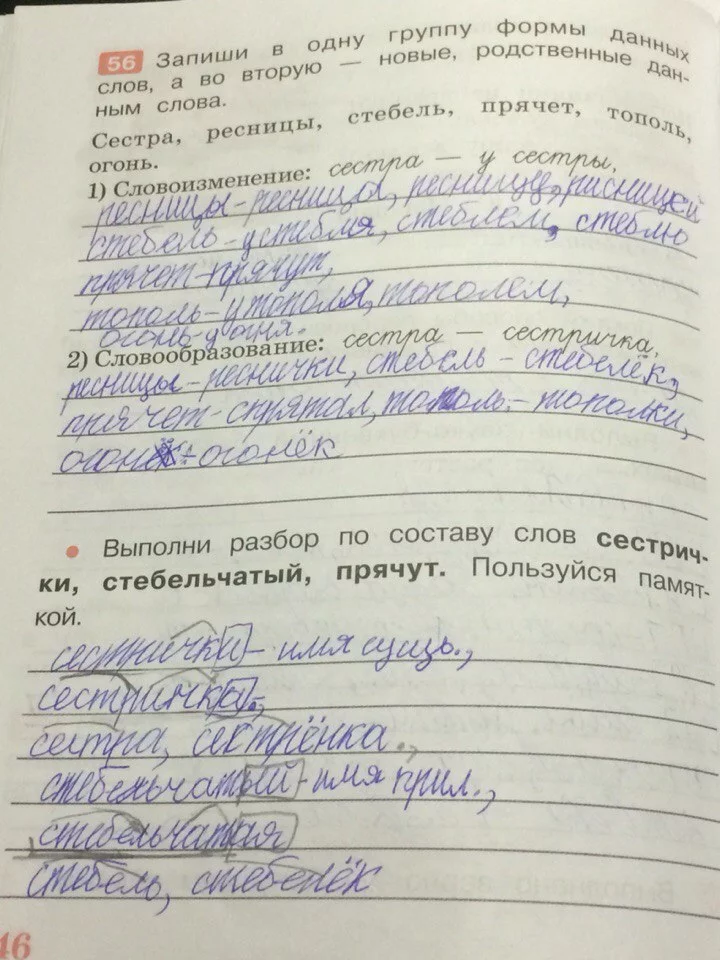 56 Запиши в одну группу формы данных
слов, а во вторую — новые, родственные дан-
ным слова.
Сестра, ресницы, стебель, прячет, тополь,
огонь.
1) Словоизменение: сестра — у сестры,
ресницы-ресница, реснице, рисницей
стебель-устебля, стеблем, стеблю
прячет-прячут,
тополь-утополя, тополем,
огонь-уогня.
2) Словообразование: сестра — сестричка,
ресницы-реснички, стебель - стебелёк,
прячет-спрятал, тополь - тополки,
огонь-огонёк
• Выполни разбор по составу слов сестрич-
ки, стебельчатый, прячут. Пользуйся памят-
кой.
сестрички - имя сущь.,
сестричка,
сестра, сестрёнка.,
стебельчатый - имя прил.,
стебельчатая
стебель, стебелёк
46